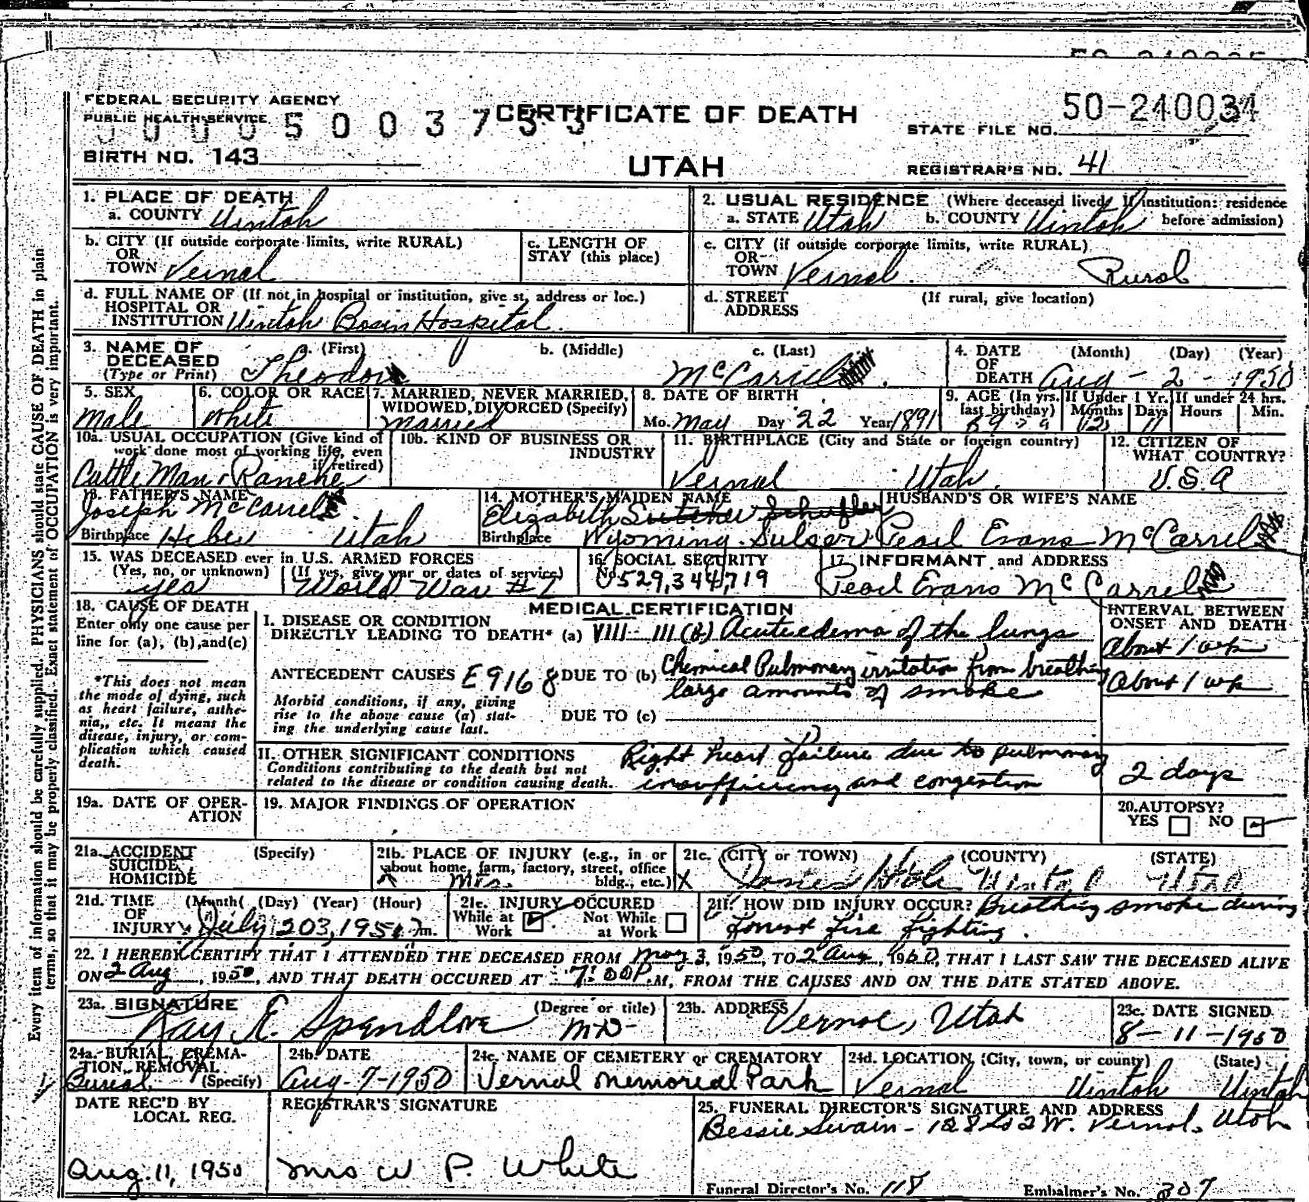 FEDERAL SECURITY AGENCY
PUBLIC HEALTH SERVICE
CERTIFICATE OF DEATH
50-240034
STATE FILE NO.
BIRTH NO. 143
UTAH
REGISTRAR'S NO. 41
1. PLACE OF DEATH
a. COUNTY Uintah
2. USUAL RESIDENCE (Where deceased lived. If institution: residence before admission)
a. STATE Utah b. COUNTY Uintah
b. CITY (If outside corporate limits, write RURAL) OR TOWN Vernal
c. LENGTH OF STAY (this place)
c. CITY (if outside corporate limits, write RURAL) OR TOWN Vernal Rural
d. FULL NAME OF (If not in hospital or institution, give st. address or loc.) HOSPITAL OR INSTITUTION Uintah Basin Hospital
d. STREET ADDRESS (If rural, give location)
3. NAME OF DECEASED (Type or Print)
a. (First) b. (Middle) c. (Last)
Theodore McCarrel
4. DATE OF DEATH (Month) (Day) (Year)
Aug - 2 - 1950
5. SEX Male
6. COLOR OR RACE White
7. MARRIED, NEVER MARRIED, WIDOWED, DIVORCED (Specify) Married
8. DATE OF BIRTH
Mo. May Day 22 Year 1891
9. AGE (In yrs. last birthday) 59 If Under 1 Yr. Months Days 11 If under 24 hrs. Hours Min.
10a. USUAL OCCUPATION (Give kind of work done most of working life, even if retired)
Cattle Man
10b. KIND OF BUSINESS OR INDUSTRY
11. BIRTHPLACE (City and State or foreign country)
Vernal Utah
12. CITIZEN OF WHAT COUNTRY?
U.S.A
13. FATHER'S NAME
Joseph McCarrel
Birthplace Heber Utah
14. MOTHER'S MAIDEN NAME
Elizabeth Sulser
Birthplace Wyoming
HUSBAND'S OR WIFE'S NAME
Pearl Evans McCarrel
15. WAS DECEASED ever in U.S. ARMED FORCES
(Yes, no, or unknown) (If yes, give war or dates of service)
yes World War
16. SOCIAL SECURITY
No 529,344,719
17. INFORMANT and ADDRESS
Pearl Evans McCarrel
18. CAUSE OF DEATH
Enter only one cause per line for (a), (b), and (c)
*This does not mean the mode of dying, such as heart failure, asthenia, etc. It means the disease, injury, or complication which caused death.
MEDICAL CERTIFICATION
INTERVAL BETWEEN ONSET AND DEATH
I. DISEASE OR CONDITION DIRECTLY LEADING TO DEATH* (a) VIII - III (b) Acute edema of the lungs
About 1 wk
ANTECEDENT CAUSES E 916 8 DUE TO (b) Chemical Pulmonary irritation from breathing large amounts of smoke
About 1 wk
Morbid conditions, if any, giving rise to the above cause (a) stating the underlying cause last.
DUE TO (c)
II. OTHER SIGNIFICANT CONDITIONS
Conditions contributing to the death but not related to the disease or condition causing death.
Right heart failure due to pulmonary insufficiency and congestion
2 days
19a. DATE OF OPERATION
19. MAJOR FINDINGS OF OPERATION
20. AUTOPSY?
YES NO
21a. ACCIDENT SUICIDE HOMICIDE (Specify)
21b. PLACE OF INJURY (e.g., in or about home, farm, factory, street, office bldg., etc.)
Mts.
21c. (CITY or TOWN) (COUNTY) (STATE)
Hole Uintah Utah
21d. TIME OF INJURY (Month) (Day) (Year) (Hour)
July m.
21e. INJURY OCCURED
While at Work Not While at Work
21f. HOW DID INJURY OCCUR? Breathing smoke during
Forest Fire fighting.
22. I HEREBY CERTIFY THAT I ATTENDED THE DECEASED FROM May 3, 1950, TO 2 Aug, 1950, THAT I LAST SAW THE DECEASED ALIVE
ON 2 Aug, 1950, AND THAT DEATH OCCURED AT 7:00 P.M., FROM THE CAUSES AND ON THE DATE STATED ABOVE.
23a. SIGNATURE (Degree or title)
Ray E. Spendlove MD
23b. ADDRESS
Vernal, Utah
23c. DATE SIGNED
8-11-1950
24a. BURIAL, CREMATION, REMOVAL (Specify)
Burial
24b. DATE
Aug-7-1950
24c. NAME OF CEMETERY or CREMATORY
Vernal Memorial Park
24d. LOCATION (City, town, or county) (State)
Vernal Uintah Utah
DATE REC'D BY LOCAL REG.
Aug. 11, 1950
REGISTRAR'S SIGNATURE
Mrs W P. White
25. FUNERAL DIRECTOR'S SIGNATURE AND ADDRESS
Bessie Swain - 128 So 2 W. Vernal, Utah
Funeral Director's No. 118 Embalmer's No. 307
Every item of information should be carefully supplied. PHYSICIANS should state CAUSE OF DEATH in plain
terms, so that it may be properly classified. Exact statement of OCCUPATION is very important.